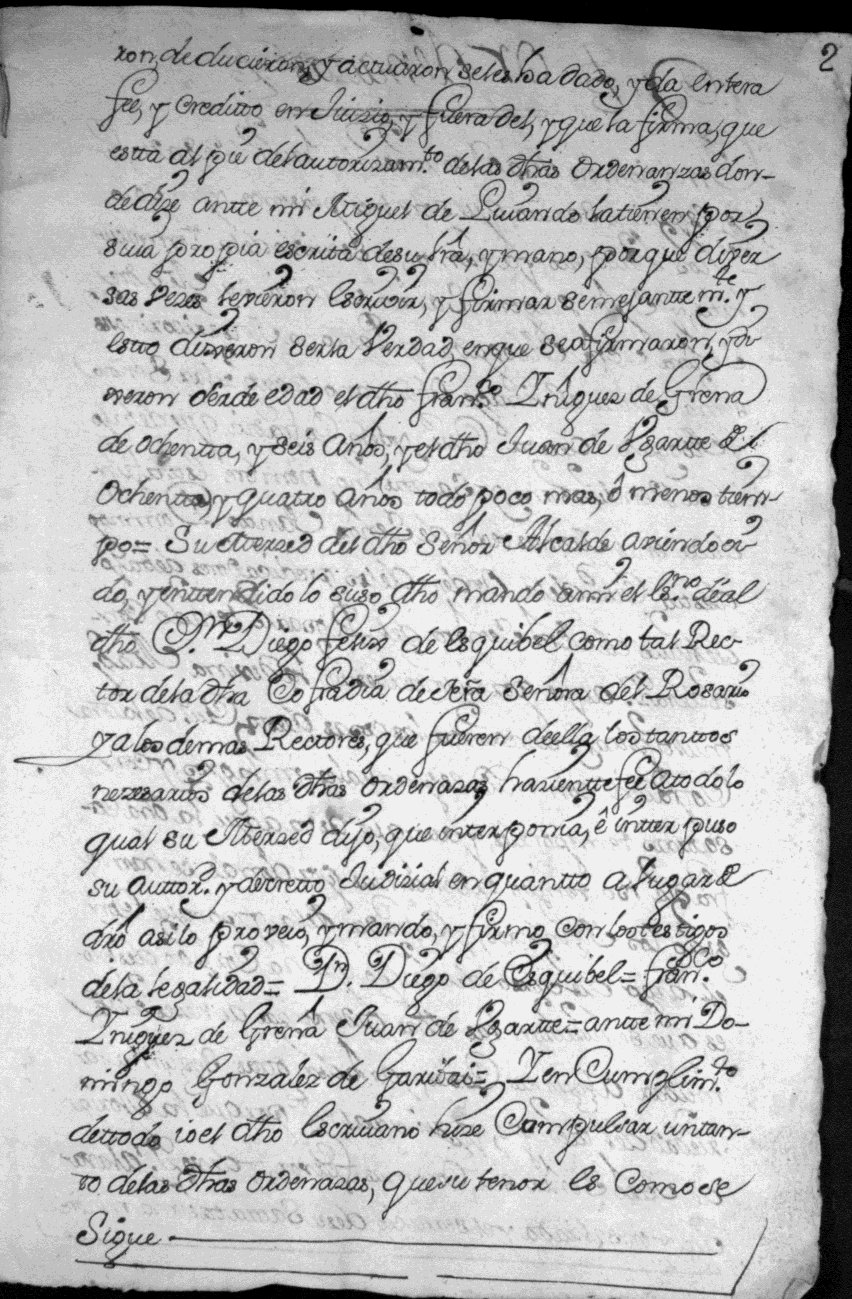 2
ron, deducieron, y actuaron seles ha dado, y da entera
fee, y creditto en Juizio, y fuera del, y que la firma, que
estta al pie del autorizam.to de las dhas ordenanzas don-
de dize antte mi Miguel de Luiando la tienen por
suia propia escrita de su lrâ, y mano, porque diver
sas vezes le vieron escriuir, y firmar semejantte m.te y
estto dixeron ser la verdad, en que se afirmaron, y di
xeron ser de edad el dho Fran.co Yñiguez de Grena
de ochentta, y seis años, y el dho Juan de Vgartte de
ochentta, y quatro años todo poco mas, ô menos tiem-
po= Su Merzed del dho Señor Alcalde aviendo oi
do, y enttendido lo suso dho mando a mi el es.no dê al
dho D.n Diego Felix de Esquibel como tal Rec-
tor de la dha Cofradia de Nrã Señora del Rosario
y a los demas Rectores, que fueren de ella los tanttos
nezesarios de las dhas ordenazas hazientte fee a todo lo
qual su Merzed dijo, que interponia, ê intterpuso
su auttor.d y decretto Judizial en quantto a lugar de
dro asi lo proveiò, y mando, y firmo con los testigos
de la legalidad= D.n Diego de Esquibel= Fran.co
Yñiguez de Grena Juan de Vgartte= antte mi Do-
mingo Gonzalez de Garibai= Y en Cumplim.to
de ttodo io el dho Escriuano hize Compulsar un tan-
to de las dhas ordenazas, que su tenor es como se
Sigue